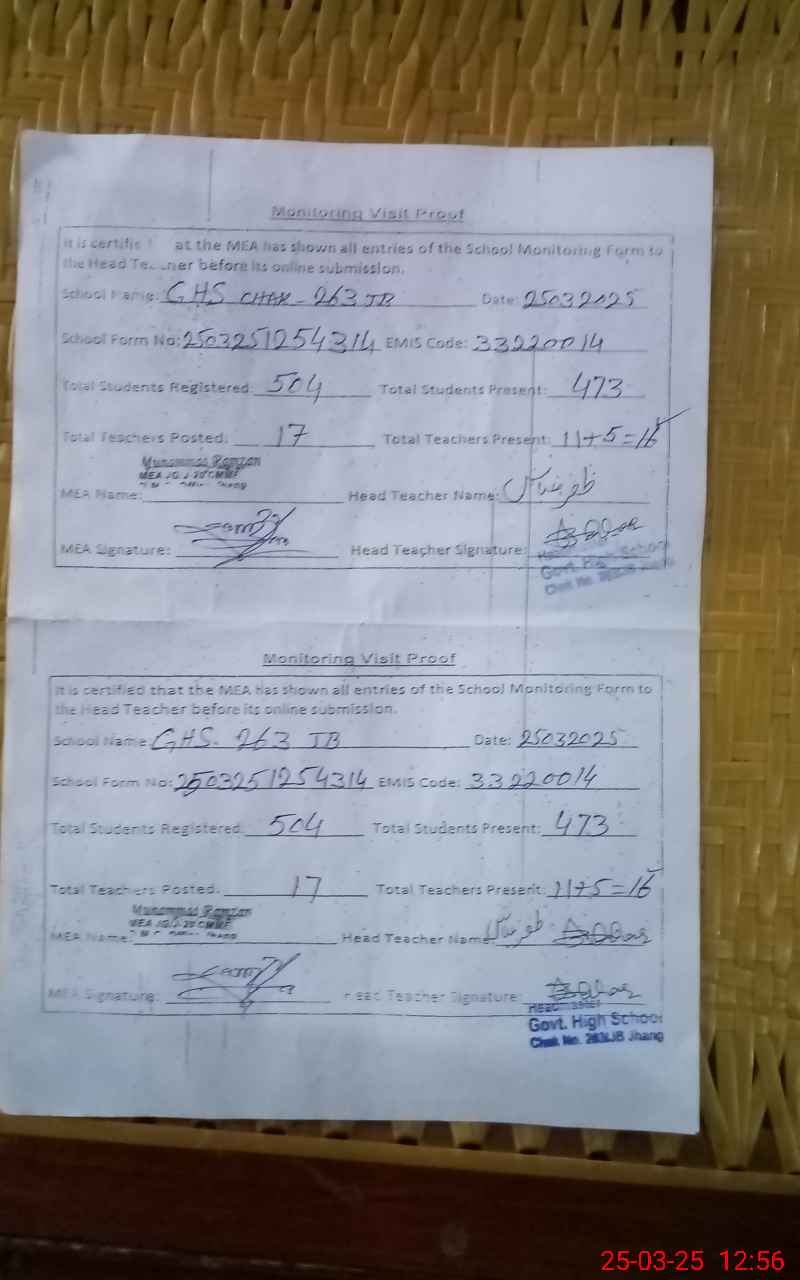 Monitoring Visit Proof
It is certifie at the MEA has shown all entries of the School Monitoring Form to
the Head Te ner before its online submission.
School Name: GHS CHAK - 263 JB Date: 25032025
School Form No: 2503251254314 EMIS Code: 33220014
Total Students Registered: 504 Total Students Present: 473
Total Teachers Posted: 17 Total Teachers Present: 11+5=16
Muhammad Ramzan
MEA JG J-20 CMMF
MEA Name: Head Teacher Name:
MEA Signature: Head Teacher Signature:
Govt. High School
Chak No.
Monitoring Visit Proof
It is certified that the MEA has shown all entries of the School Monitoring Form to
the Head Teacher before its online submission.
School Name GHS. 263 JB Date: 25032025
School Form No: 2503251254314 EMIS Code: 33220014
Total Students Registered: 504 Total Students Present: 473
Total Teachers Posted: 17 Total Teachers Present: 11+5=16
Muhammad Ramzan
MEA JG J-20 CMMF
MEA Name: Head Teacher Name
MEA Signature: Head Teacher Signature:
Headmaster
Govt. High School
Chak No. 263/JB Jhang
25-03-25 12:56